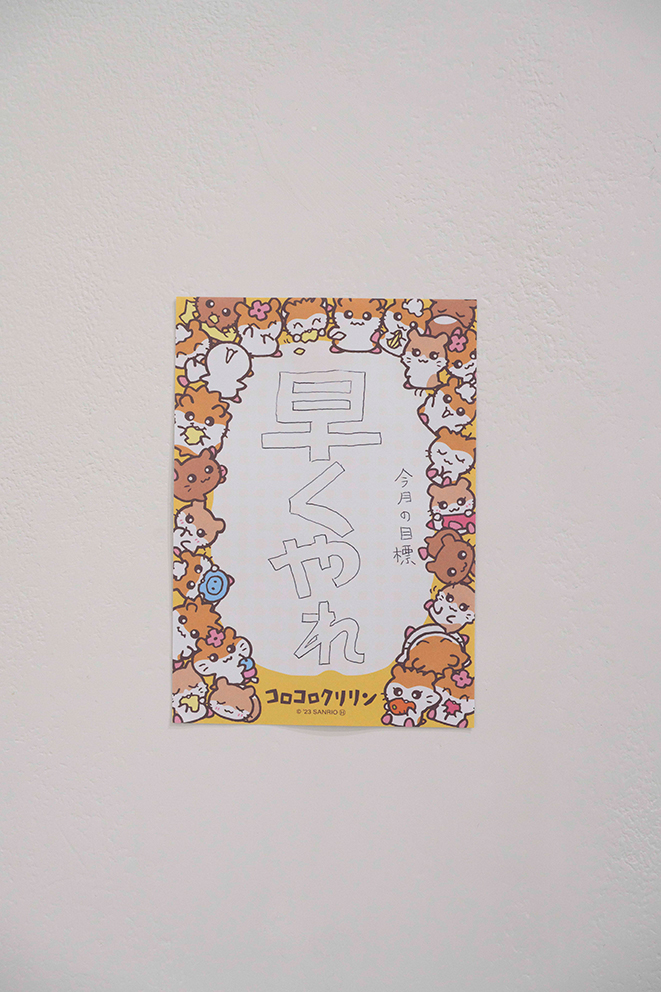 今月の目標
早くやれ
コロコロクリリン
© '23 SANRIO Ⓗ